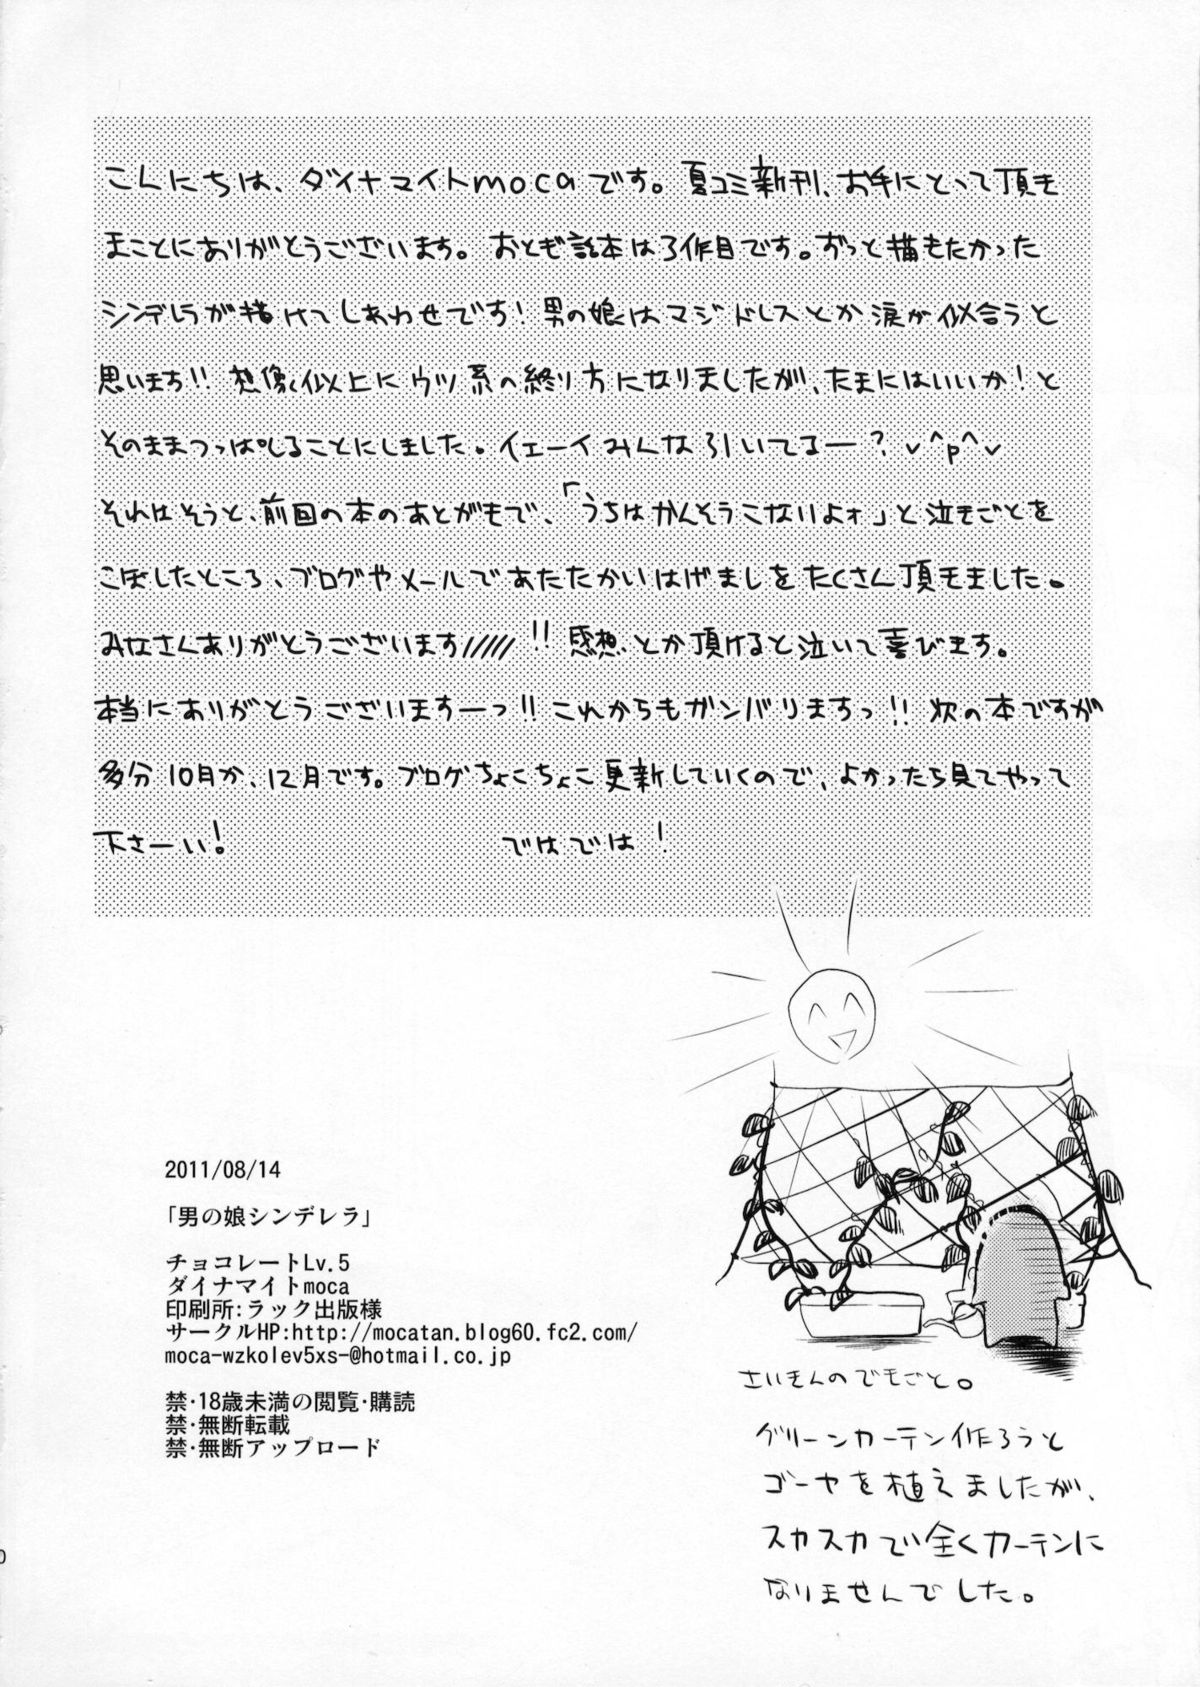 こんにちは、ダイナマイトmocaです。夏コミ新刊、お手にとって頂き
まことにありがとうございます。おとぎ話本は3作目です。ずっと描きたかった
シンデレラが描けてしあわせです!男の娘はマジドレスとか涙が似合うと
思います!!想像以上にウツ系の終り方になりましたが、たまにはいいか!と
そのままつっぱしることにしました。イェーイみんな引いてるー?v^p^v
それはそうと、前回の本のあとがきで、「うちはかんそうこないよォ」と泣きごとを
こぼしたところ、ブログやメールであたたかいはげましをたくさん頂きました。
みなさんありがとうございます/////!!感想とか頂けると泣いて喜びます。
本当にありがとうございますーっ!!これからもガンバリますっ!!次の本ですが
多分10月か、12月です。ブログちょこちょこ更新していくので、よかったら見てやって
下さーい! ではでは!
2011/08/14
「男の娘シンデレラ」
チョコレートLv.5
ダイナマイトmoca
印刷所:ラック出版様
サークルHP:http://mocatan.blog60.fc2.com/
moca-wzkolev5xs-@hotmail.co.jp
禁・18歳未満の閲覧・購読
禁・無断転載
禁・無断アップロード
さいきんのできごと。
グリーンカーテン作ろうと
ゴーヤを植えましたが、
スカスカで全くカーテンに
なりませんでした。